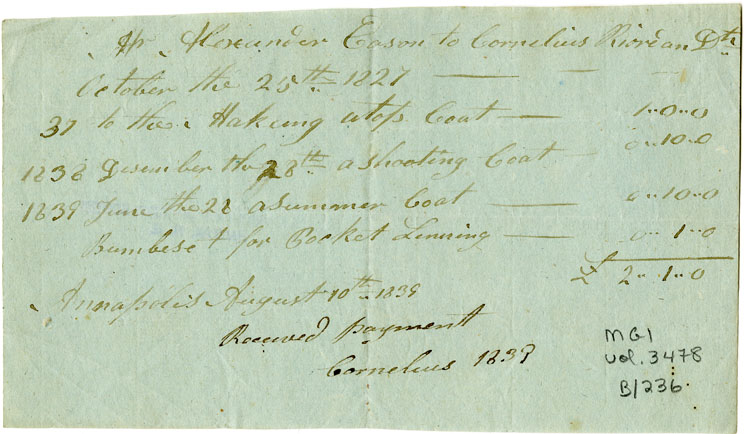 Mr Alexander Eason to Cornelius Riordan Dtr
October the 25th 1827
37 to the Making atop Coat — 1"0"0
1838 Desember the 28th a shooting Coat — 0"10"0
1839 June the 28 a summer Coat — 0"10"0
Bumbeset for Pocket Linning — 0"1"0
£ 2"1"0
Annapolis August 10th 1839
Received payment
Cornelius 1839
MG1
vol. 3478
B/236